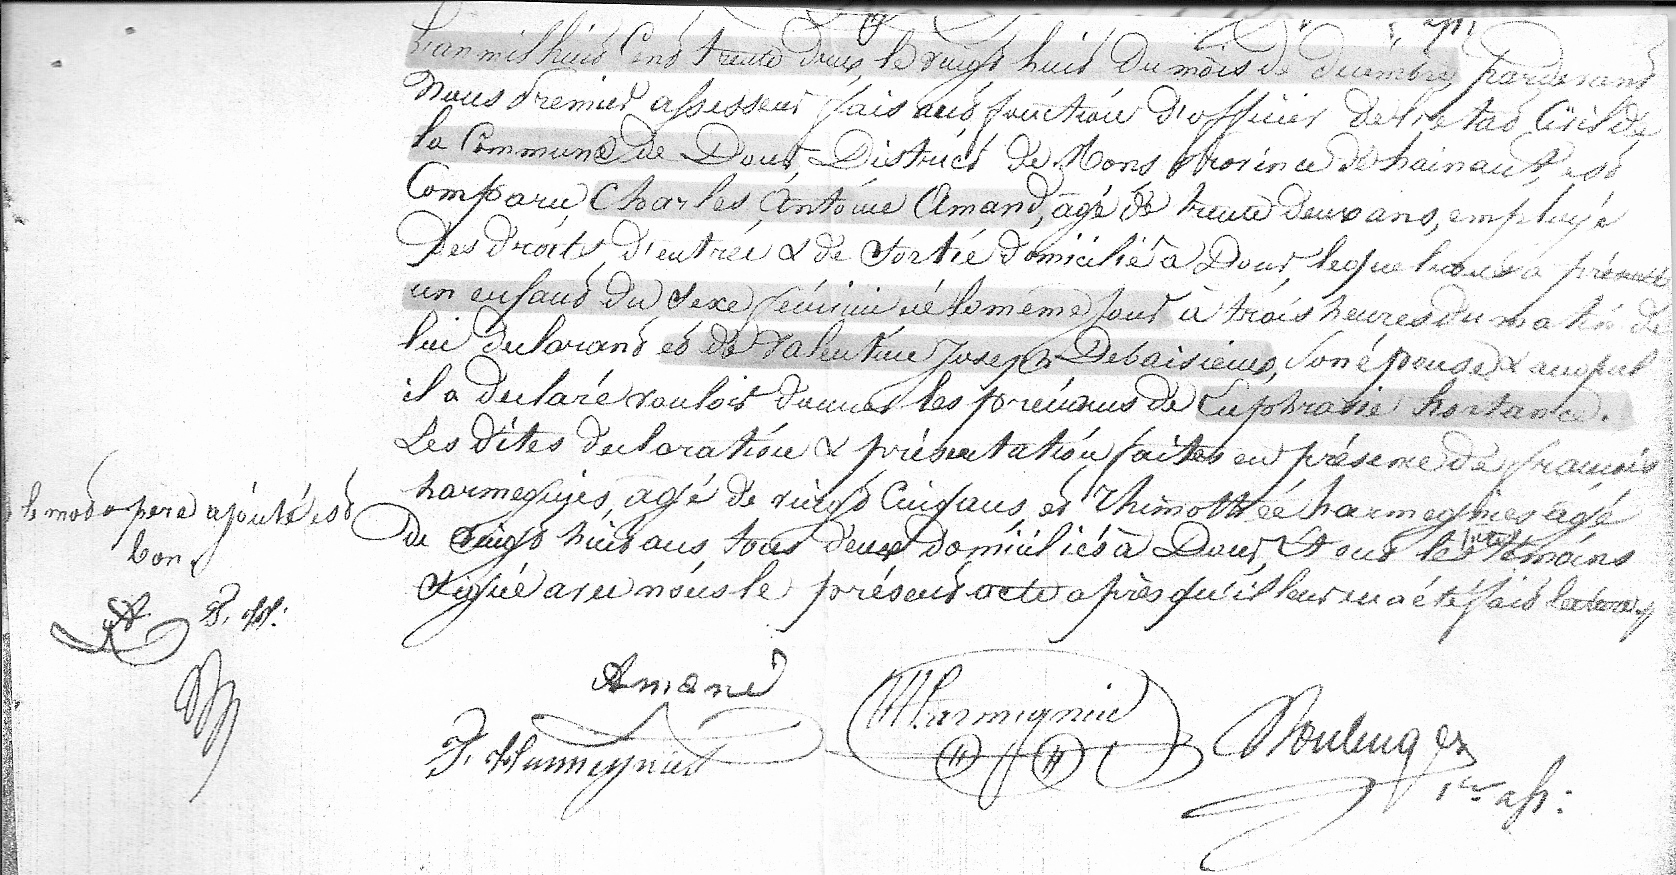 L'an mil huit Cent trente deux, le vingt huit du mois de décembre, pardevant
Nous Premier assesseur faisant fonction d'officier de l'etat Civil de
la Commune de Dour, District de Mons province de hainaut, est
Comparu Charles Antoine Amand, agé de trente deux ans, employé
Des droits d'entrée & de Sortie domicilié à Dour, lequel nous a présenté
un enfant du Sexe féminin né le même jour à trois heures du matin de
lui declarant et de Valentine Joseph Debaisieux, son épouse & auquel
il a declaré vouloir donner les prénoms de Euphrasie hortance.
Les dites declaration & présentation faites en présence de françois
harmegnies, agé de vingt Cinq ans, et Thimothée harmegnies agé
de vingt huit ans, tous deux domiciliés à Dour, & ont les témoins
Signé avec nous le présent acte après qu'il leur en a été fait lecture
le mot père ajouté est
bon
A. F. H:
Amand
F. Harmegnies
Harmegnies
Boulenger
1er ass: